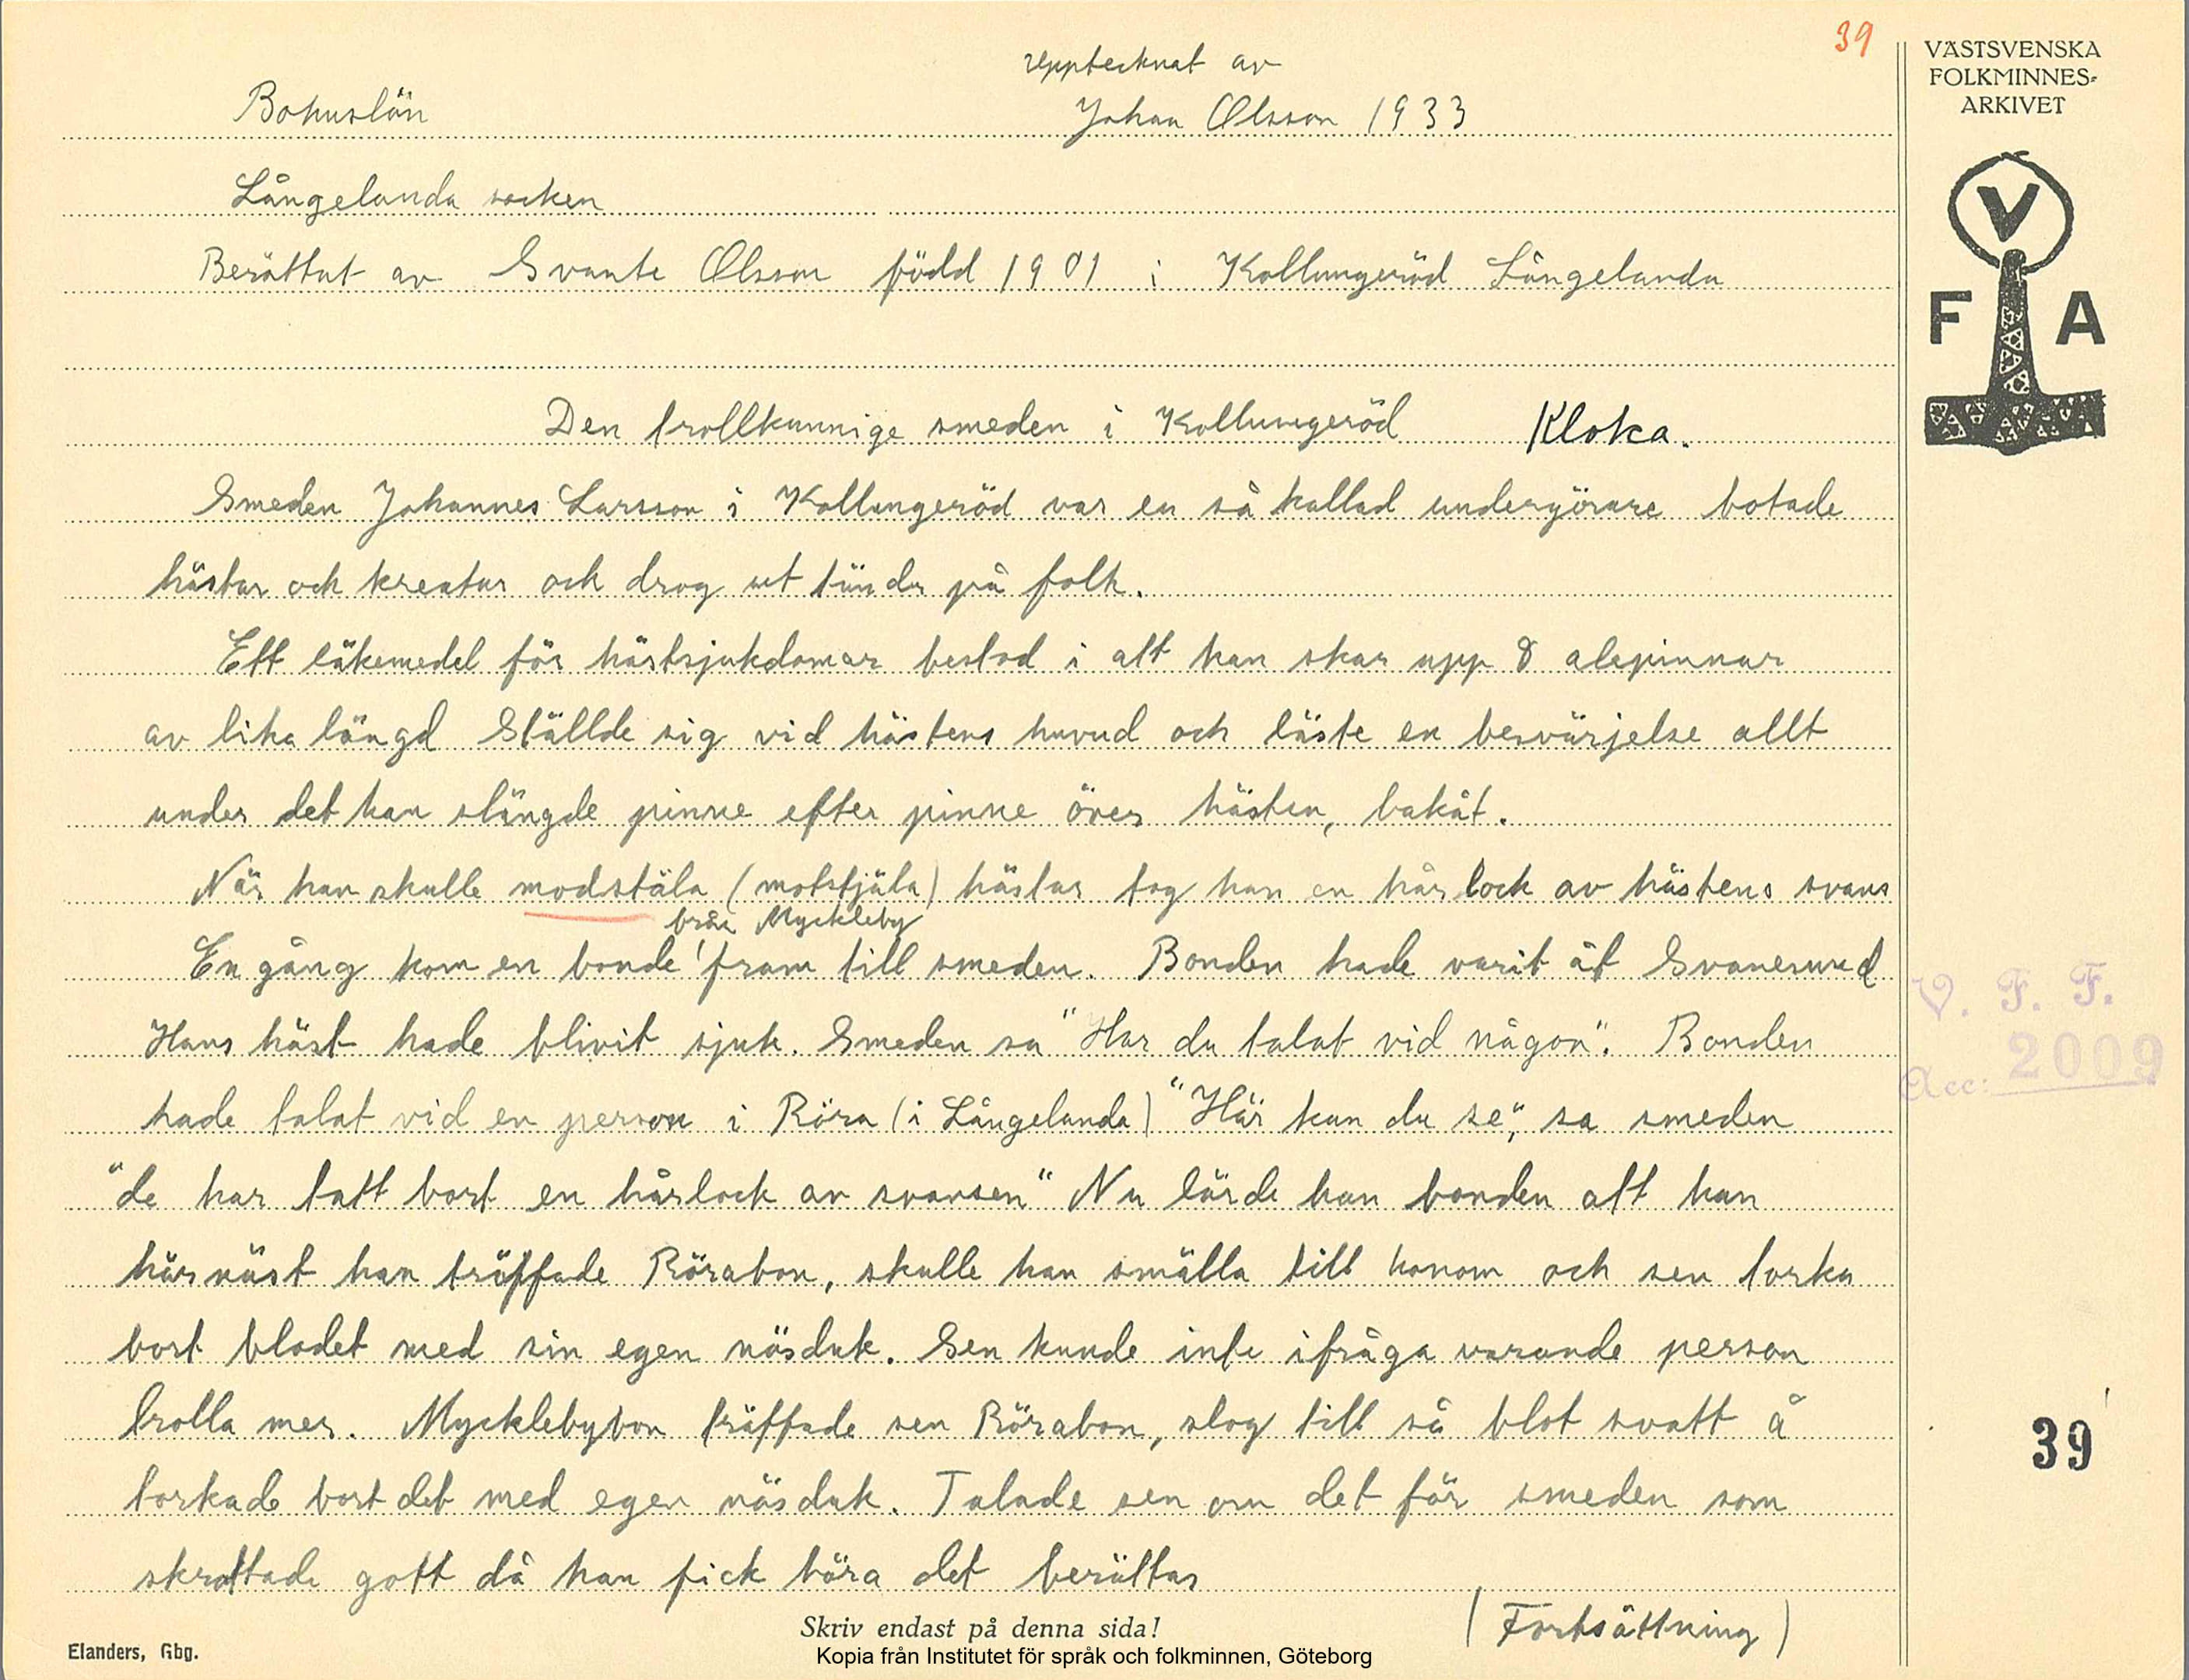 39
VÄSTSVENSKA
FOLKMINNES-
ARKIVET
V
F A
upptecknat av
Bohuslän Johan Olsson 1933
Långelanda socken
Berättat av Svante Olsson född 1901 i Kollungeröd Långelanda
Den trollkunnige smeden i Kollungeröd Kloka.
Smeden Johannes Larsson i Kollungeröd var en så kallad undergörare botade
hästar och kreatur och drog ut tänder på folk.
Ett läkemedel för hästsjukdomar bestod i att han skar upp 8 alepinnar
av lika längd Ställde sig vid hästens huvud och läste en besvärjelse allt
under det han slängde pinne efter pinne över hästen, bakåt.
När han skulle modstäla (motstjäla) hästar tog han en hårlock av hästens svans
från Myckleby
En gång kom en bonde fram till smeden. Bonden hade varit åt Svanesund
Hans häst hade blivit sjuk. Smeden sa "Har du talat vid någon". Bonden
hade talat vid en person i Röra (i Långelanda) "Här kan du se", sa smeden
"de har tatt bort en hårlock av svansen" Nu lärde han bonden att han
härnäst han träffade Rörabon, skulle han smälla till honom och sen torka
bort blodet med sin egen näsduk. Sen kunde inte ifråga varande person
trolla mer. Mycklebybon träffade sen Rörabon, slog till så blot svatt å
torkade bort det med egen näsduk. Talade sen om det för smeden som
skrattade gott då han fick höra det berättas
(Fortsättning)
V. F. F.
Acc: 2009
39
Skriv endast på denna sida!
Elanders, Gbg.
Kopia från Institutet för språk och folkminnen, Göteborg